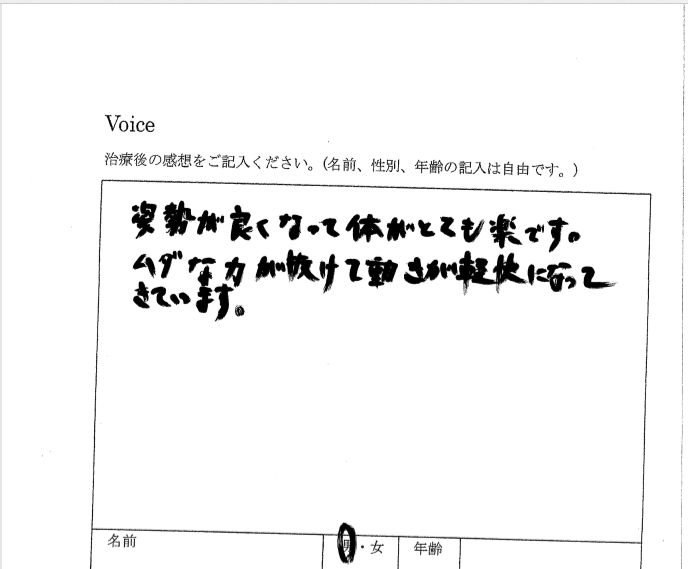 Voice
治療後の感想をご記入ください。(名前、性別、年齢の記入は自由です。)
姿勢が良くなって体がとても楽です。
ムダな力が抜けて動きが軽快になって
きています。
名前 男・女 年齢